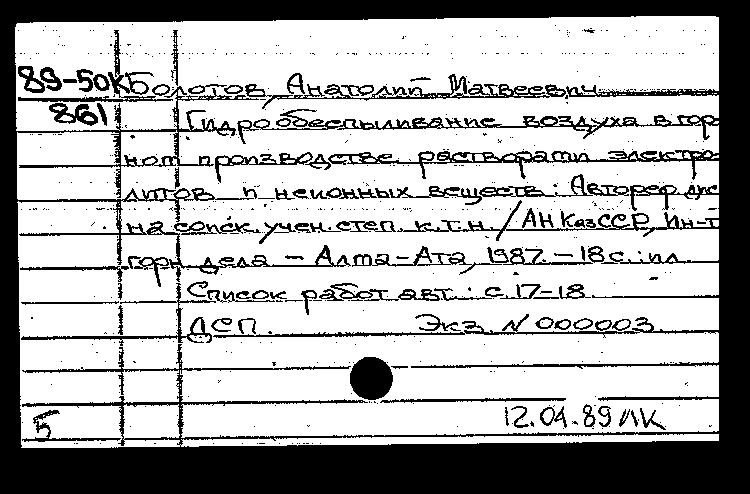 89-50К Болотов, Анатолий Матвеевич
861 Гидрообеспыливание воздуха в гор
ном производстве растворами электро-
литов и неионных веществ: Автореф. дис
на соиск. учен. степ. к.т.н. / АН КазССР, Ин-т
горн дела – Алма-Ата, 1987 – 18 с.: ил.
Список работ авт.: с. 17-18.
ДСП. Экз. N 000003.
5 12.04.89 ЛК